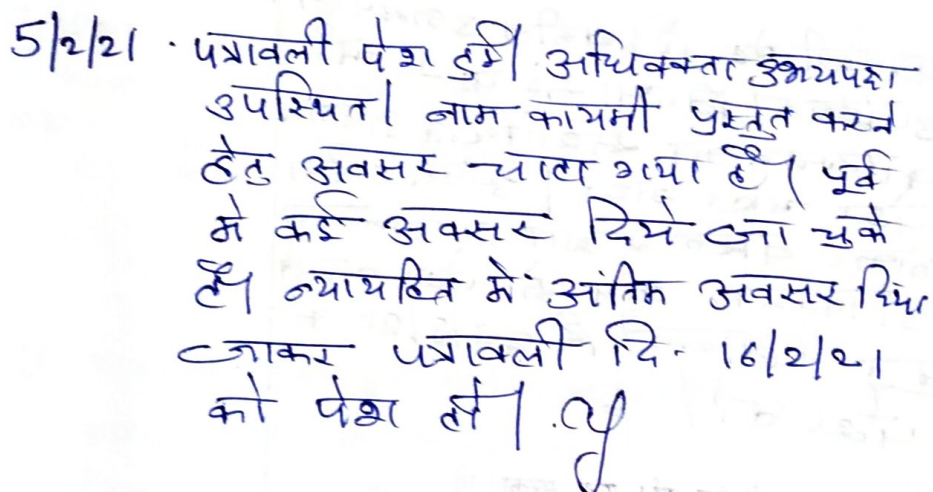 5/2/21 . पत्रावली पेश हुई। अधिवक्ता उभयपक्ष
उपस्थित। नाम कायमी प्रस्तुत करने
हेतु अवसर चाहा गया है। पूर्व
मे कई अवसर दिये जा चुके
है। न्यायहित में अंतिम अवसर दिया
जाकर पत्रावली दि. 16/2/21
को पेश हो।